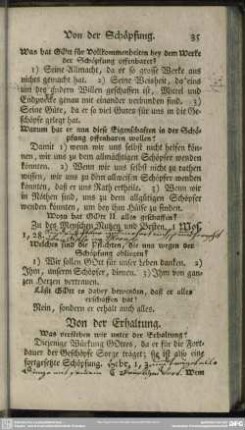 Von der Schöpfung. 35
Was hat GOtt für Vollkommenheiten bey dem Werke
der Schöpfung offenbaret?
1) Seine Allmacht, da er so grosse Werke aus
nichts gemacht hat. 2) Seine Weisheit, da eins
um des andern Willen geschaffen ist, Mittel und
Endzwecke genau mit einander verbunden sind. 3)
Seine Güte, da er so viel Gutes für uns in die Ge-
schöpfe gelegt hat.
Warum hat er nun diese Eigenschaften in der Schö-
pfung offenbaren wollen?
Damit 1) wenn wir uns selbst nicht helfen kön-
nen, wir uns zu dem allmächtigen Schöpfer wenden
könnten. 2) Wenn wir uns selbst nicht zu rathen
wissen, wir uns zu dem allweisen Schöpfer wenden
könnten, daß er uns Rath ertheile. 3) Wenn wir
in Nöthen sind, uns zu dem allgütigen Schöpfer
wenden könnten, um bey ihm Hülfe zu finden.
Wozu hat GOtt alles geschaffen?
Zu der Menschen Nutzen und Besten, 1 Mos.
1, 28.
Welches sind die Pflichten, die uns wegen der
Schöpfung obliegen?
1) Wir sollen GOtt für unser Leben danken. 2)
Ihm, unserm Schöpfer, dienen. 3) Ihm von gan-
zen Herzen vertrauen.
Läßt GOtt es dabey bewenden, daß er alles
erschaffen hat?
Nein, sondern er erhält auch alles.
Von der Erhaltung.
Was verstehen wir unter der Erhaltung?
Diejenige Würkung GOttes, da er für die Fort-
dauer der Geschöpfe Sorge träget; sie ist also eine
fortgesetzte Schöpfung. Hebr. 1, 3.
Wem